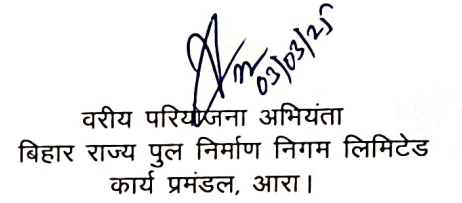 03/03/25
वरीय परियोजना अभियंता
बिहार राज्य पुल निर्माण निगम लिमिटेड
कार्य प्रमंडल, आरा।